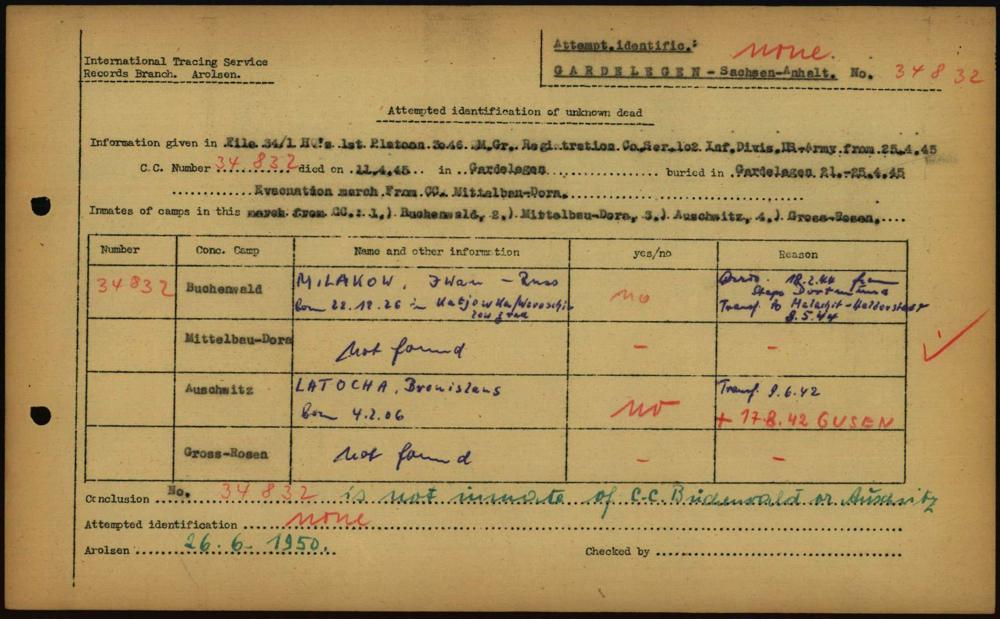 International Tracing Service
Records Branch. Arolsen.
Attempt.identific.: none.
GARDELEGEN - Sachsen-Anhalt. No. 34832
Attempted identification of unknown dead
Information given in File 34/1 HQ's 1st Platoon 3046 Gr. Registration Co. Ser. 102 Inf. Divis. Army from 25.4.45
C.C. Number 34 832 died on 11.4.45 in Gardelegen buried in Gardelegen 21.-25.4.45
Evacuation march From CC. Mittelbau-Dora.
Inmates of camps in this march from CC.: 1.) Buchenwald, 2.) Mittelbau-Dora, 3.) Auschwitz, 4.) Gross-Rosen.
Number Conc. Camp Name and other information yes/no Reason
34832 Buchenwald MILAKOW, Iwan - Russ no 18.2.44 from
born 22.12.26 in Stapo Dortmund
Transf. to Malachit-Halberstadt
8.5.44
Mittelbau-Dora Not found - -
Auschwitz LATOCHA, Bronislaus no Transf. 9.6.42
born 4.2.06 + 17.8.42 GUSEN
Gross-Rosen Not found - -
Conclusion No. 34 832 is not inmate of C.C. Buchenwald or Auschwitz
Attempted identification none
Arolsen 26.6.1950. Checked by